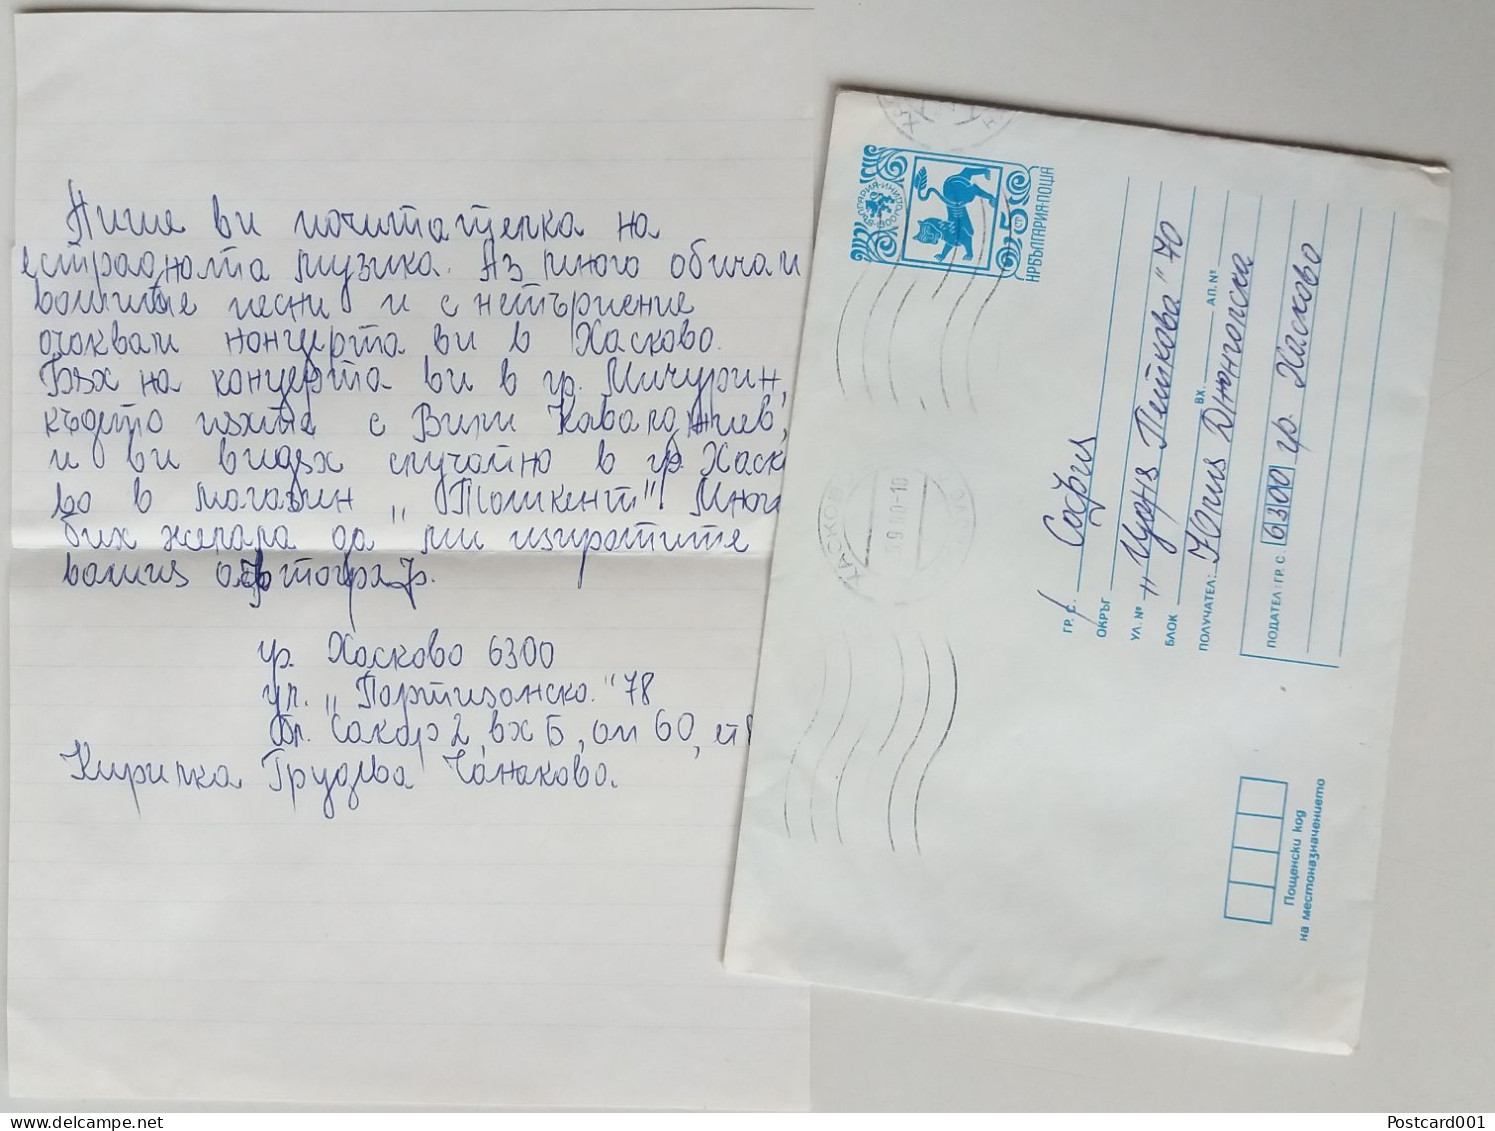 Пише ви почитателка на
естрадната музика. Аз много обичам
вашите песни и с нетърпение
очаквам концерта ви в Хасково.
Бях на концерта ви в гр. Мичурин,
където пяхте с Вили Кавалджиев,
и ви видях случайно в гр. Хаско
во в магазин „Ташкент". Много
бих желала да ми изпратите
вашия автограф.
гр. Хасково 6300
ул. „Партизанска" 78
бл. Сакар 2, вх Б, ап 60, ет 8
Кирилка Грудева Чанакова.
БЪЛГАРИЯ-ИНИ
НРБЪЛГАРИЯ·ПОЩА
5
ХАСКОВО
9.80-10
ГР. С. София
ОКРЪГ
УЛ. № „Цоня Петкова" 70
БЛОК ВХ. АП. №
ПОЛУЧАТЕЛ:
ПОДАТЕЛ: ГР. С. 6300 гр. Хасково
Пощенски код
на местоназначението
Postcard001